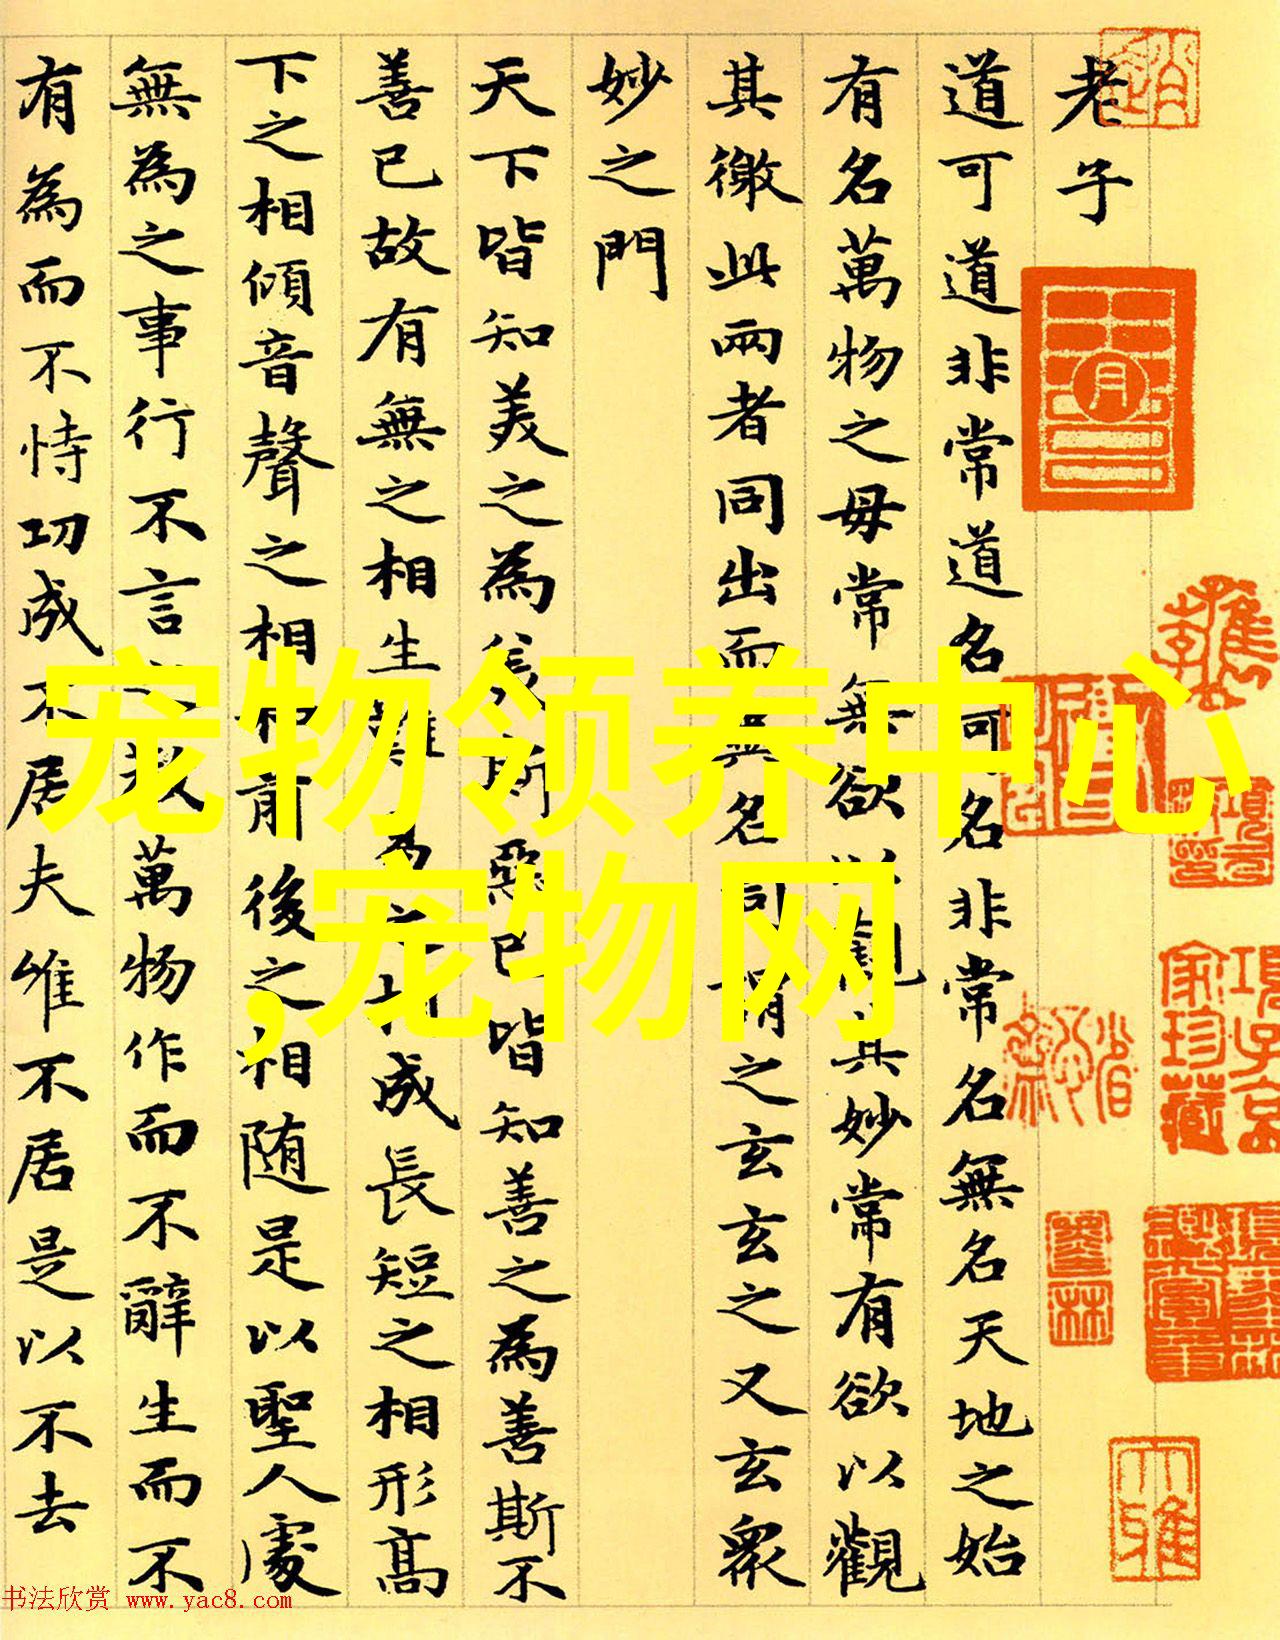 老子
道可道非常道名可名非常名無名天地之始
有名萬物之毋常無欲以觀其妙常有欲以觀
其徼此兩者同出而異名同謂之玄玄之又玄衆
妙之門
天下皆知美之為美斯惡已皆知善之為善斯不
善已故有無之相生難易之相成長短之相形髙
下之相傾音聲之相和前後之相随是以聖人處
無為之事行不言之教萬物作而不辭生而不
有為而不恃功成不居夫唯不居是以不去
宠物领养中心
,宠物网
項子京
家珍藏
书法欣赏 www.yac8.com